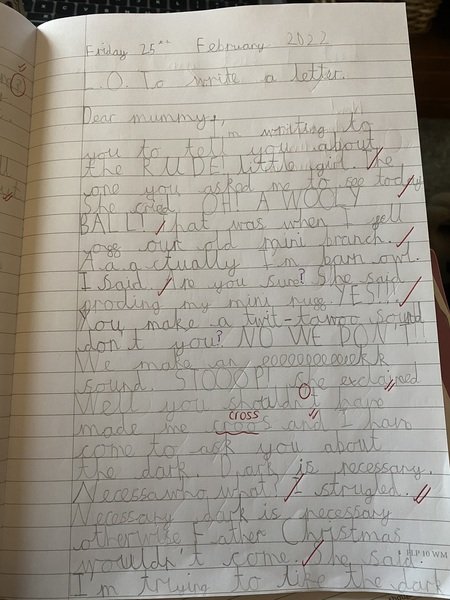 Friday 25th February 2022
L.O. To write a letter.
Dear mummy,
I'm writing to
you to tell you about
the RUDE! little girl. The
one you asked me to see today
She cried OH! A WOOLY
BALL! That was when I fell
ogg our old mini branch.
A a actually I'm barn owl.
I said. Are you sure? She said
proding my mini rugg. YES!!!
You make a twit-tawoo sound
don't you? NO WE DON'T!!
We make an eeeeeeeeeeekk
sound. STOOOP! She exclaimed
Well you shouldn't have
cross
made me croos and I have
come to ask you about
the dark. Dark is necessary.
Necessawho what? I strugled.
Necessary dark is necessary
otherwise Father Christmas
wouldn't come. She said.
FLP 10 WM
I'm trying to like the dark